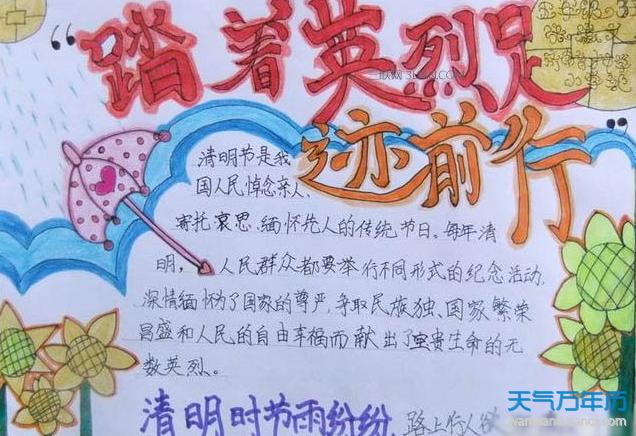 “踏着英烈足
迹前行”
清明节是我
国人民悼念亲人、
寄托哀思、缅怀先人的传统节日。每年清
明，人民群众都要举行不同形式的纪念活动，
深情缅怀为了国家的尊严，争取民族独、国家繁荣
昌盛和人民的自由幸福而献出了宝贵生命的无
数英烈。
清明时节雨纷纷，路上行人欲
天气万年历